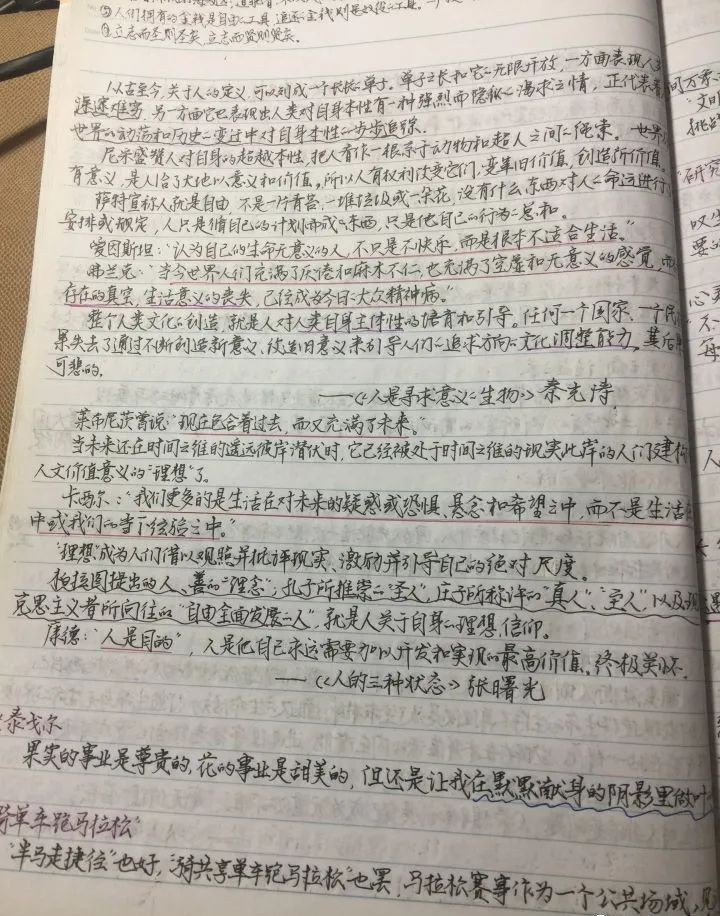 ②人们拥有的金钱是自由的工具,追逐的金钱则是奴役的工具。
③立志而圣则圣矣,立志而贤则贤矣。
从古至今,关于人的定义,可以列成一个长长的单子。单子之长和它的无限开放,一方面表现人类
深邃难穷,另一方面它也表现出人类对自身本性有一种强烈而隐秘的渴求之情,正代表着
世界的动荡和历史的变迁中对自身本性的步步追踪。
尼采盛赞人对自身的超越本性,把人看作一根系于动物和超人之间的绳索。世界
有意义,是人给了大地以意义和价值。所以人有权利改变它们,变革旧价值,创造新价值。
萨特宣称人就是自由,不是一片青苔,一堆垃圾或一朵花,没有什么东西对人的命运进行
安排或规定,人只是循自己的计划而成的东西,只是他自己的行为的总和。
爱因斯坦:“认为自己的生命无意义的人,不只是不快乐,而是根本不适合生活。”
弗兰克:“当今世界人们充满了厌倦和麻木不仁,也充满了空虚和无意义的感觉,而
存在的真空,生活意义的丧失,已经成为今日的大众精神病。”
整个人类文化的创造,就是人对人类自身主体性的培育和引导。任何一个国家、一个民
果失去了通过不断创造新意义、改造旧意义来引导人们的追求方向的文化调整能力,其后果
可悲的。
——《人是寻求意义的生物》秦光涛
莱布尼茨曾说:“现在包含着过去,而又充满了未来。”
当未来还在时间之维的遥远彼岸潜伏时,它已经被处于时间之维的现实此岸的人们建构
人文价值意义的“理想”了。
卡西尔:“我们更多的是生活在对未来的疑惑或恐惧、悬念和希望之中,而不是生活在
中或我们的当下经验之中。”
“理想”成为人们借以观照并批评现实、激励并引导自己的绝对尺度。
柏拉图提出的人、善的“理念”,孔子所推崇的“圣人”,庄子所称许的“真人”、“至人”以及现
克思主义者所向往的“自由全面发展的人”,就是人关于自身的理想、信仰。
康德:“人是目的”,人是他自己永远需要加以开发和实现的最高价值、终极关怀。
——《人的三种状态》张曙光
泰戈尔
果实的事业是尊贵的,花的事业是甜美的,但还是让我在默默献身的阴影里做叶
骑单车跑马拉松”
“半马走捷径”也好,“骑共享单车跑马拉松”也罢,马拉松赛事作为一个公共场域,见